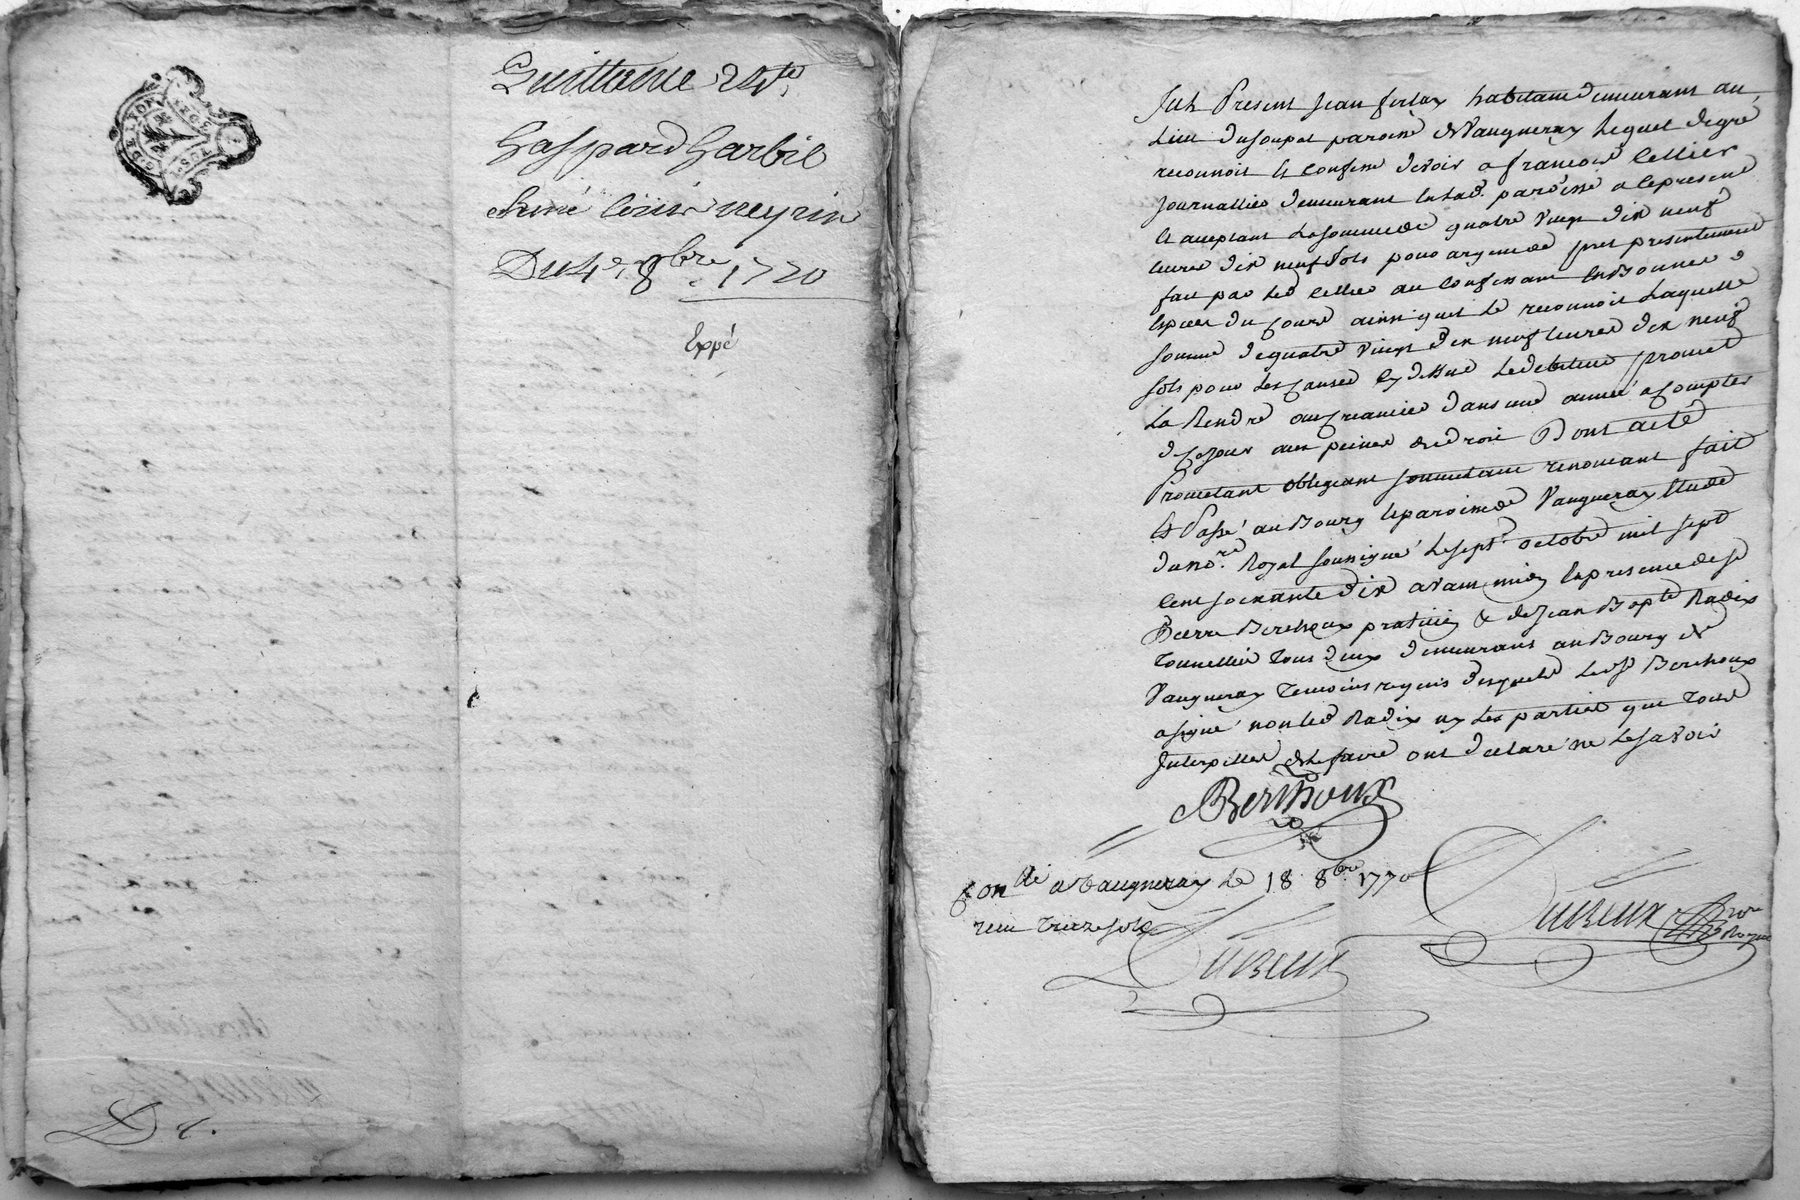 Quittance 24.tt
Gaspard Garbil
Louis neyrin
Du 4e 8bre 1770
Expé
Fut Present Jean ferlay habitant demeurant au
Lieu du soupat paroisse de Vaugneray Lequel de gré
reconnoit et confesse devoir a francois Cellier
Journallier demeurant en lad. paroisse a ce present
et acceptant La somme de quatre vingt dix neuf
livres dix neuf sols pour argent de pret presentement
fait par led Cellier au confessant En Bonnes
Especes du cours ainsi qu'il Le reconnoit Laquelle
somme de quatre vingt dix neuf livres dix neuf
sols pour Les causes cy dessus Le debiteur promet
La Rendre au creancier dans une année a compter
de ce jour aux peines de droit Dont acte
Promettant obligeant soumettant renoncant fait
Et Passé au Bourg et paroisse de Vaugneray Etude
du no.re Royal soussigné Le sept.e octobre mil sept
Cent soixante dix avant midy En presence de sr
Pierre Berthoux praticien & de Jean Bapte Radix
Tonnellier tous deux demeurans au Bourg de
Vaugneray temoins requis desquels Led sr Berthoux
a signé non led Radix ny Les parties que tous
Interpellés de le faire ont declaré ne Le savoir
Berthoux
Con.lé a Vaugneray le 18 8bre 1770
recu treize sols
Dubeux
Dubeux nore Royal